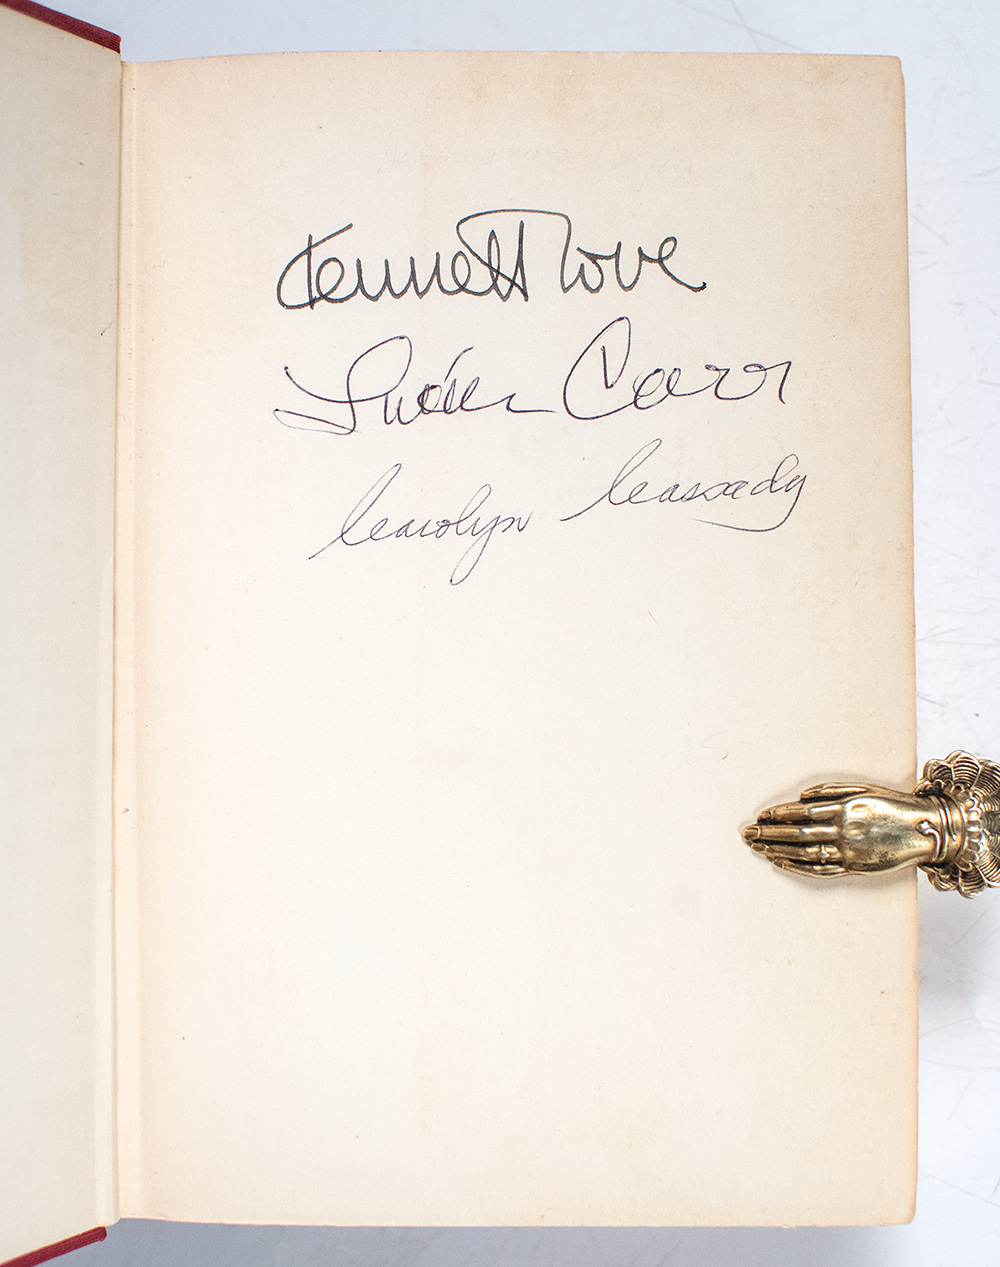 Kennett Love
Lucien Carr
Carolyn Cassady